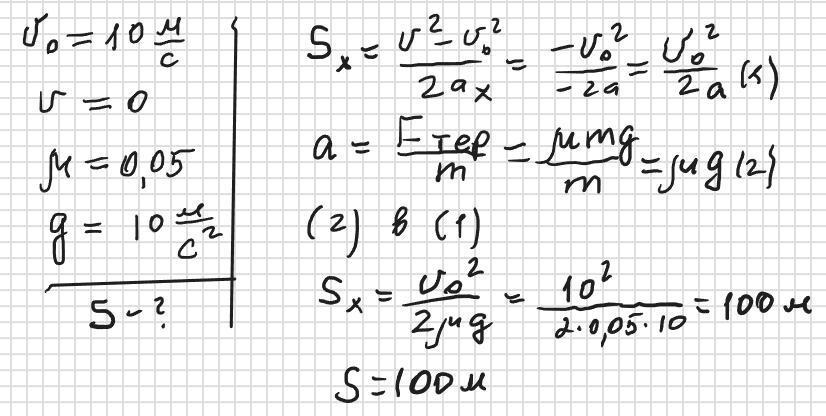 υ₀ = 10 м/с
υ = 0
μ = 0,05
g = 10 м/с²
S - ?
Sₓ = (υ² - υ₀²)/(2aₓ) = (-υ₀²)/(-2a) = υ₀²/(2a) (1)
a = Fтер/m = μmg/m = μg (2)
(2) в (1)
Sₓ = υ₀²/(2μg) = 10²/(2·0,05·10) = 100 м
S = 100 м